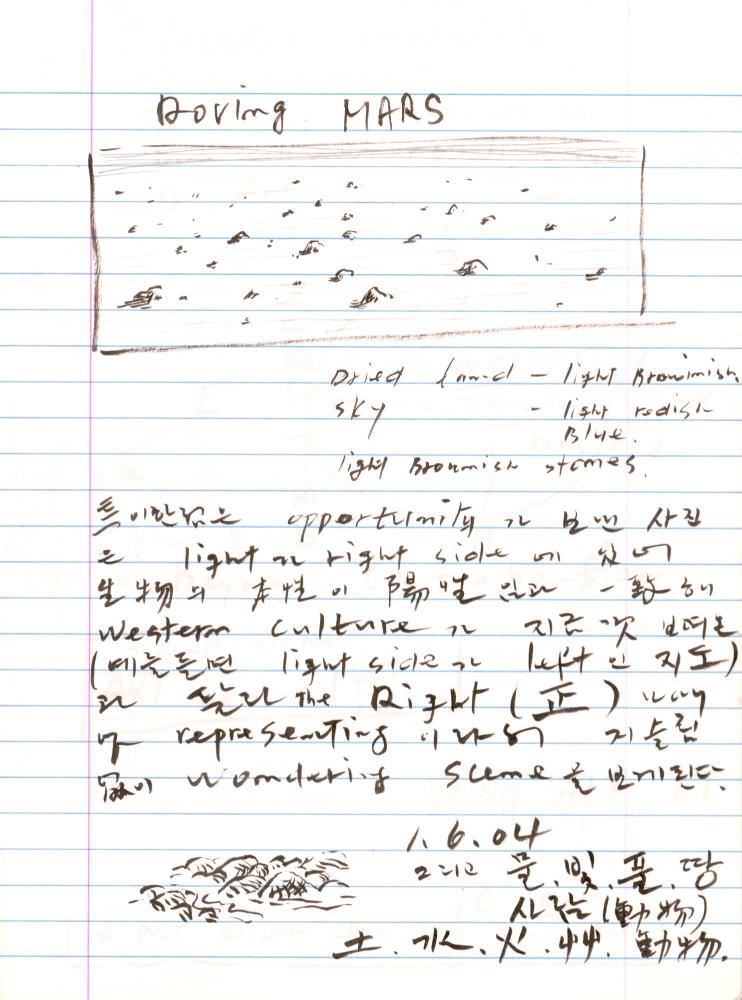 Roving MARS
Dried land - light Brownish
SKY - light redish
Blue.
light Brownish stones.
특이한점은 opportunity가 보낸 사진
은 light가 right side에 있어
生物의 本性이 陽性임과 一致해
Western culture가 지금껏 보여온
(예를들면 light side가 left인 지도)
과 달라 the Right (正)
representing 이라 거슬림
없이 wondering scene을 보게된다.
1.6.04
그리고 물.빛.풀.땅
사람(動物)
土.水.火.艸.動物.